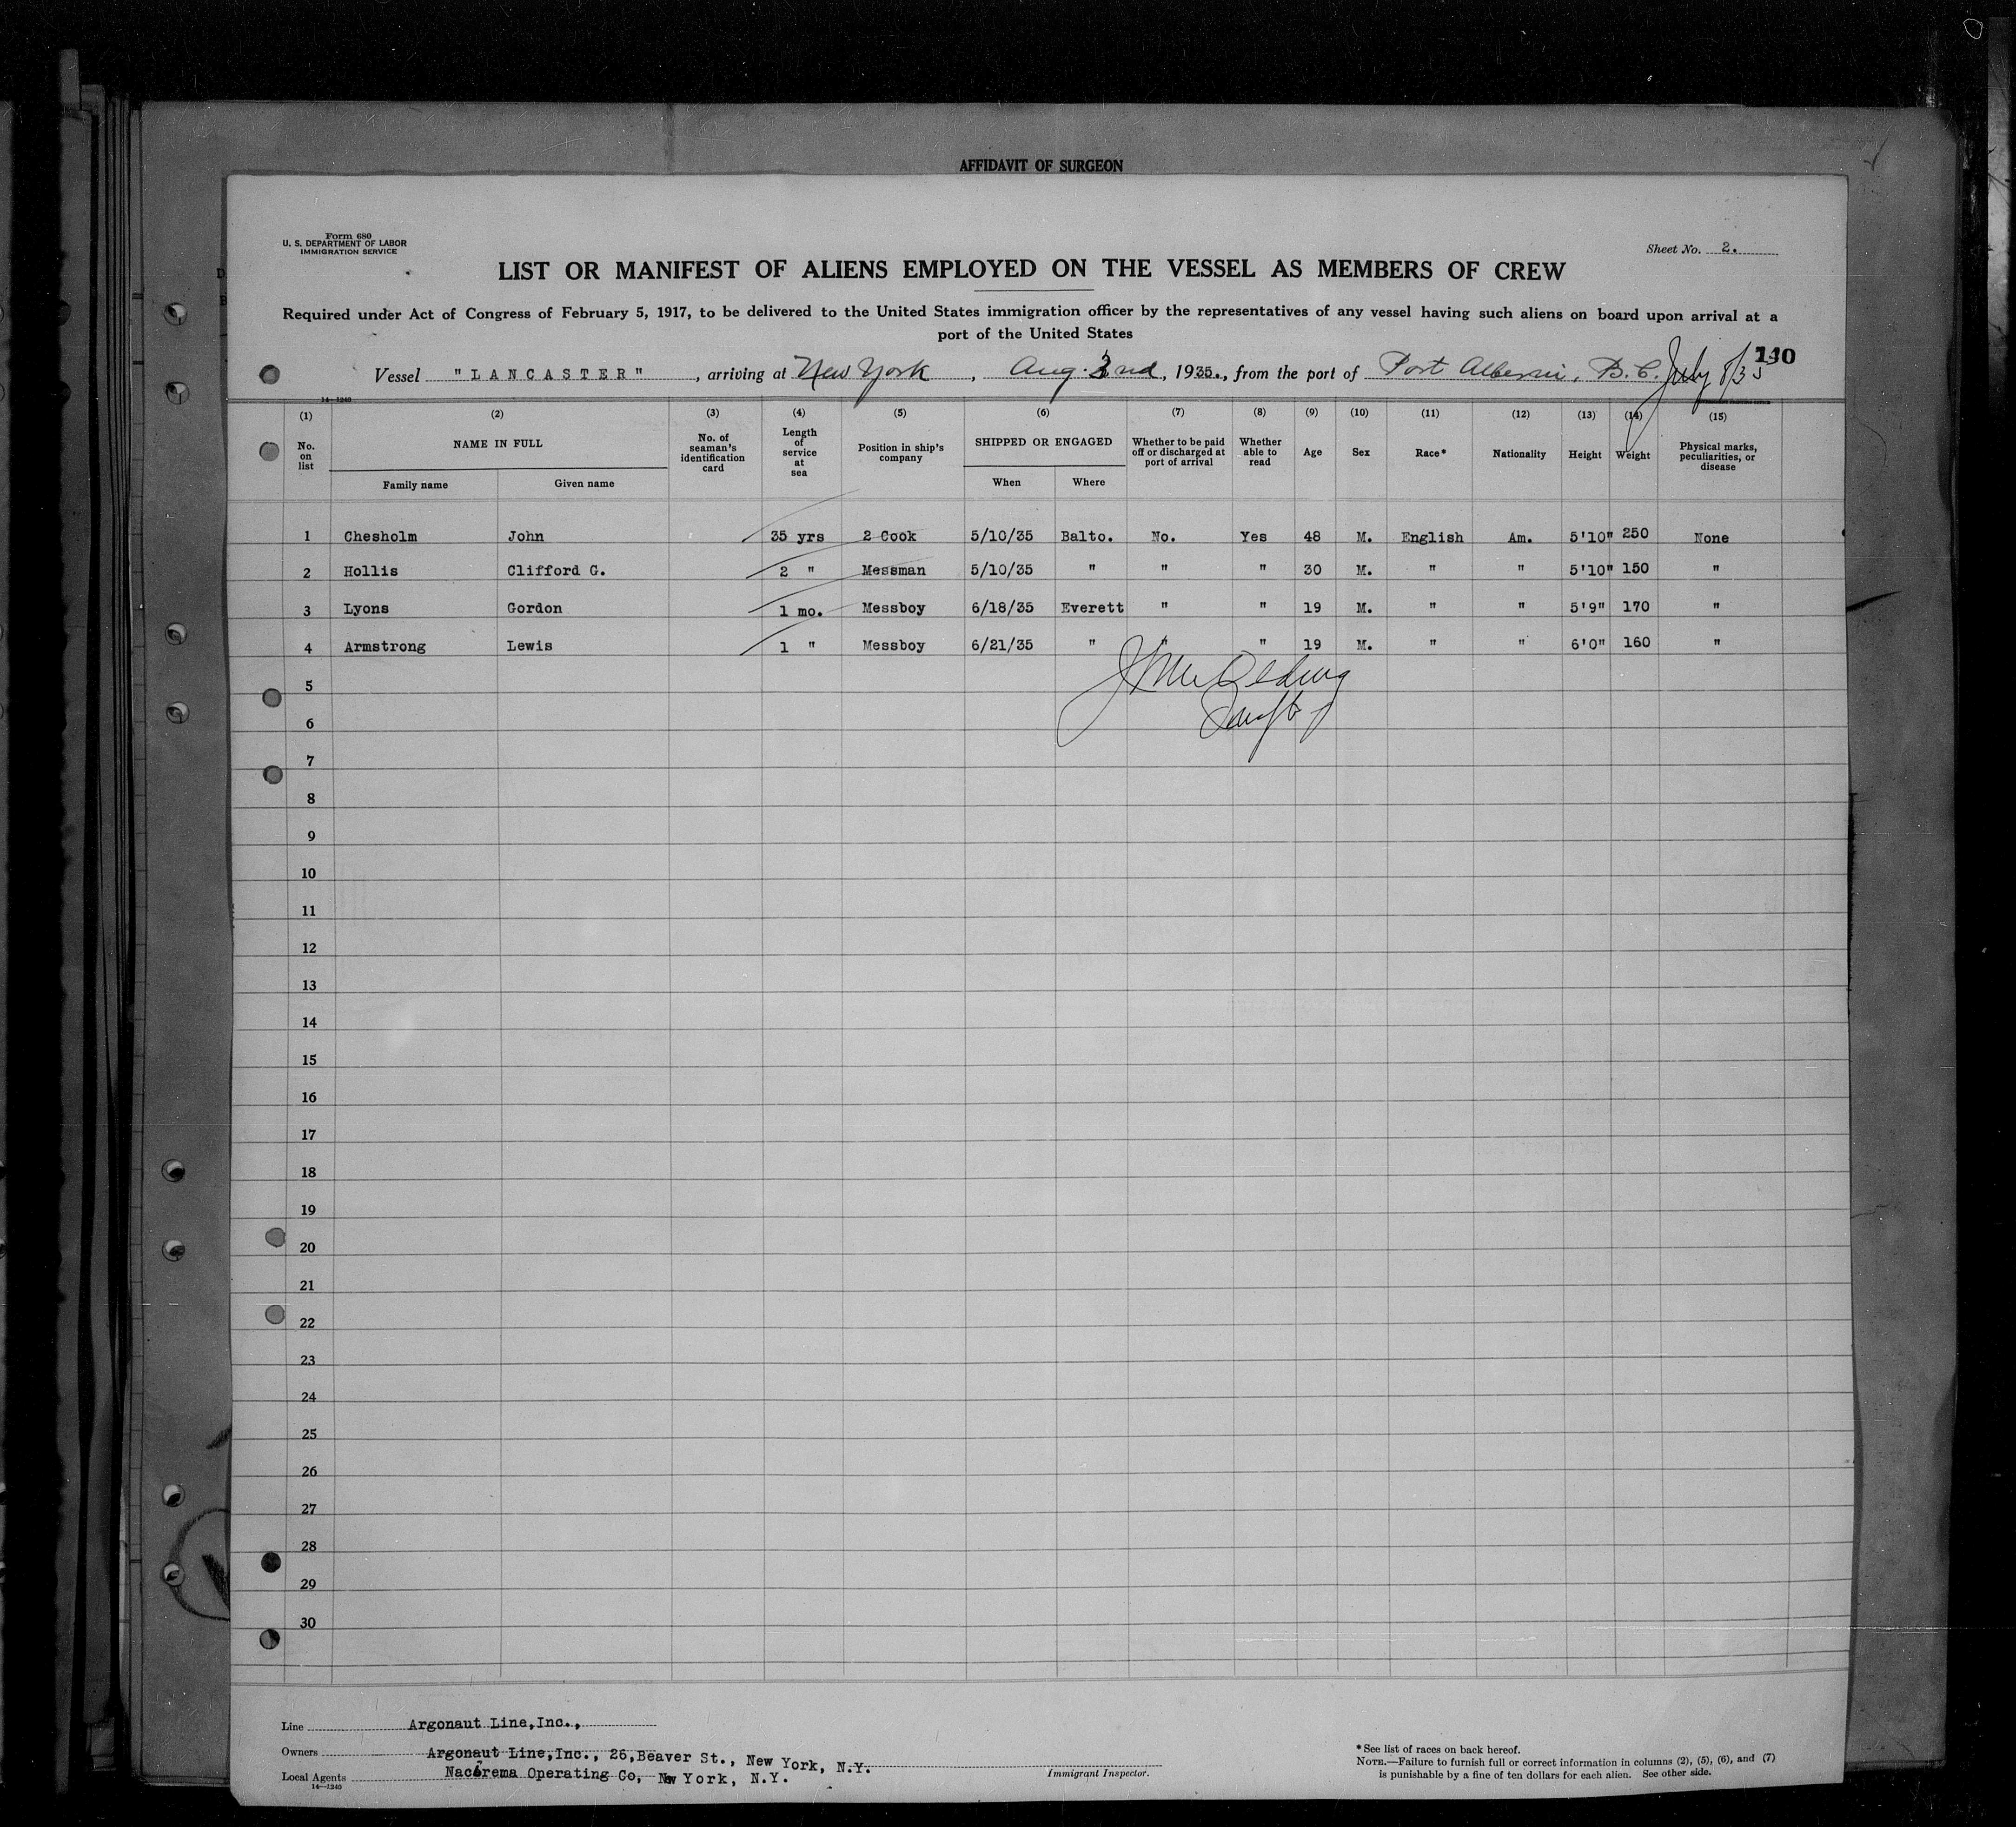 AFFIDAVIT OF SURGEON
Form 680
U. S. DEPARTMENT OF LABOR
IMMIGRATION SERVICE
Sheet No. 2.
LIST OR MANIFEST OF ALIENS EMPLOYED ON THE VESSEL AS MEMBERS OF CREW
Required under Act of Congress of February 5, 1917, to be delivered to the United States immigration officer by the representatives of any vessel having such aliens on board upon arrival at a
port of the United States
130
Vessel "LANCASTER", arriving at New York, Aug. 2nd, 1935., from the port of Port Alberni, B.C. July 8/35
14—1240
(1) (2) (3) (4) (5) (6) (7) (8) (9) (10) (11) (12) (13) (14) (15)
No. on list NAME IN FULL No. of seaman's identification card Length of service at sea Position in ship's company SHIPPED OR ENGAGED Whether to be paid off or discharged at port of arrival Whether able to read Age Sex Race* Nationality Height Weight Physical marks, peculiarities, or disease
Family name Given name When Where
1 Chesholm John 35 yrs 2 Cook 5/10/35 Balto. No. Yes 48 M. English Am. 5'10" 250 None
2 Hollis Clifford G. 2 " Messman 5/10/35 " " " 30 M. " " 5'10" 150 "
3 Lyons Gordon 1 mo. Messboy 6/18/35 Everett " " 19 M. " " 5'9" 170 "
4 Armstrong Lewis 1 " Messboy 6/21/35 " " " 19 M. " " 6'0" 160 "
5
6
7
8
9
10
11
12
13
14
15
16
17
18
19
20
21
22
23
24
25
26
27
28
29
30
Line Argonaut Line,Inc.,
Owners Argonaut Line,Inc., 26,Beaver St., New York, N.Y.
Local Agents Nacirema Operating Co, New York, N.Y.
14—1240
Immigrant Inspector.
*See list of races on back hereof.
NOTE.—Failure to furnish full or correct information in columns (2), (5), (6), and (7)
is punishable by a fine of ten dollars for each alien. See other side.